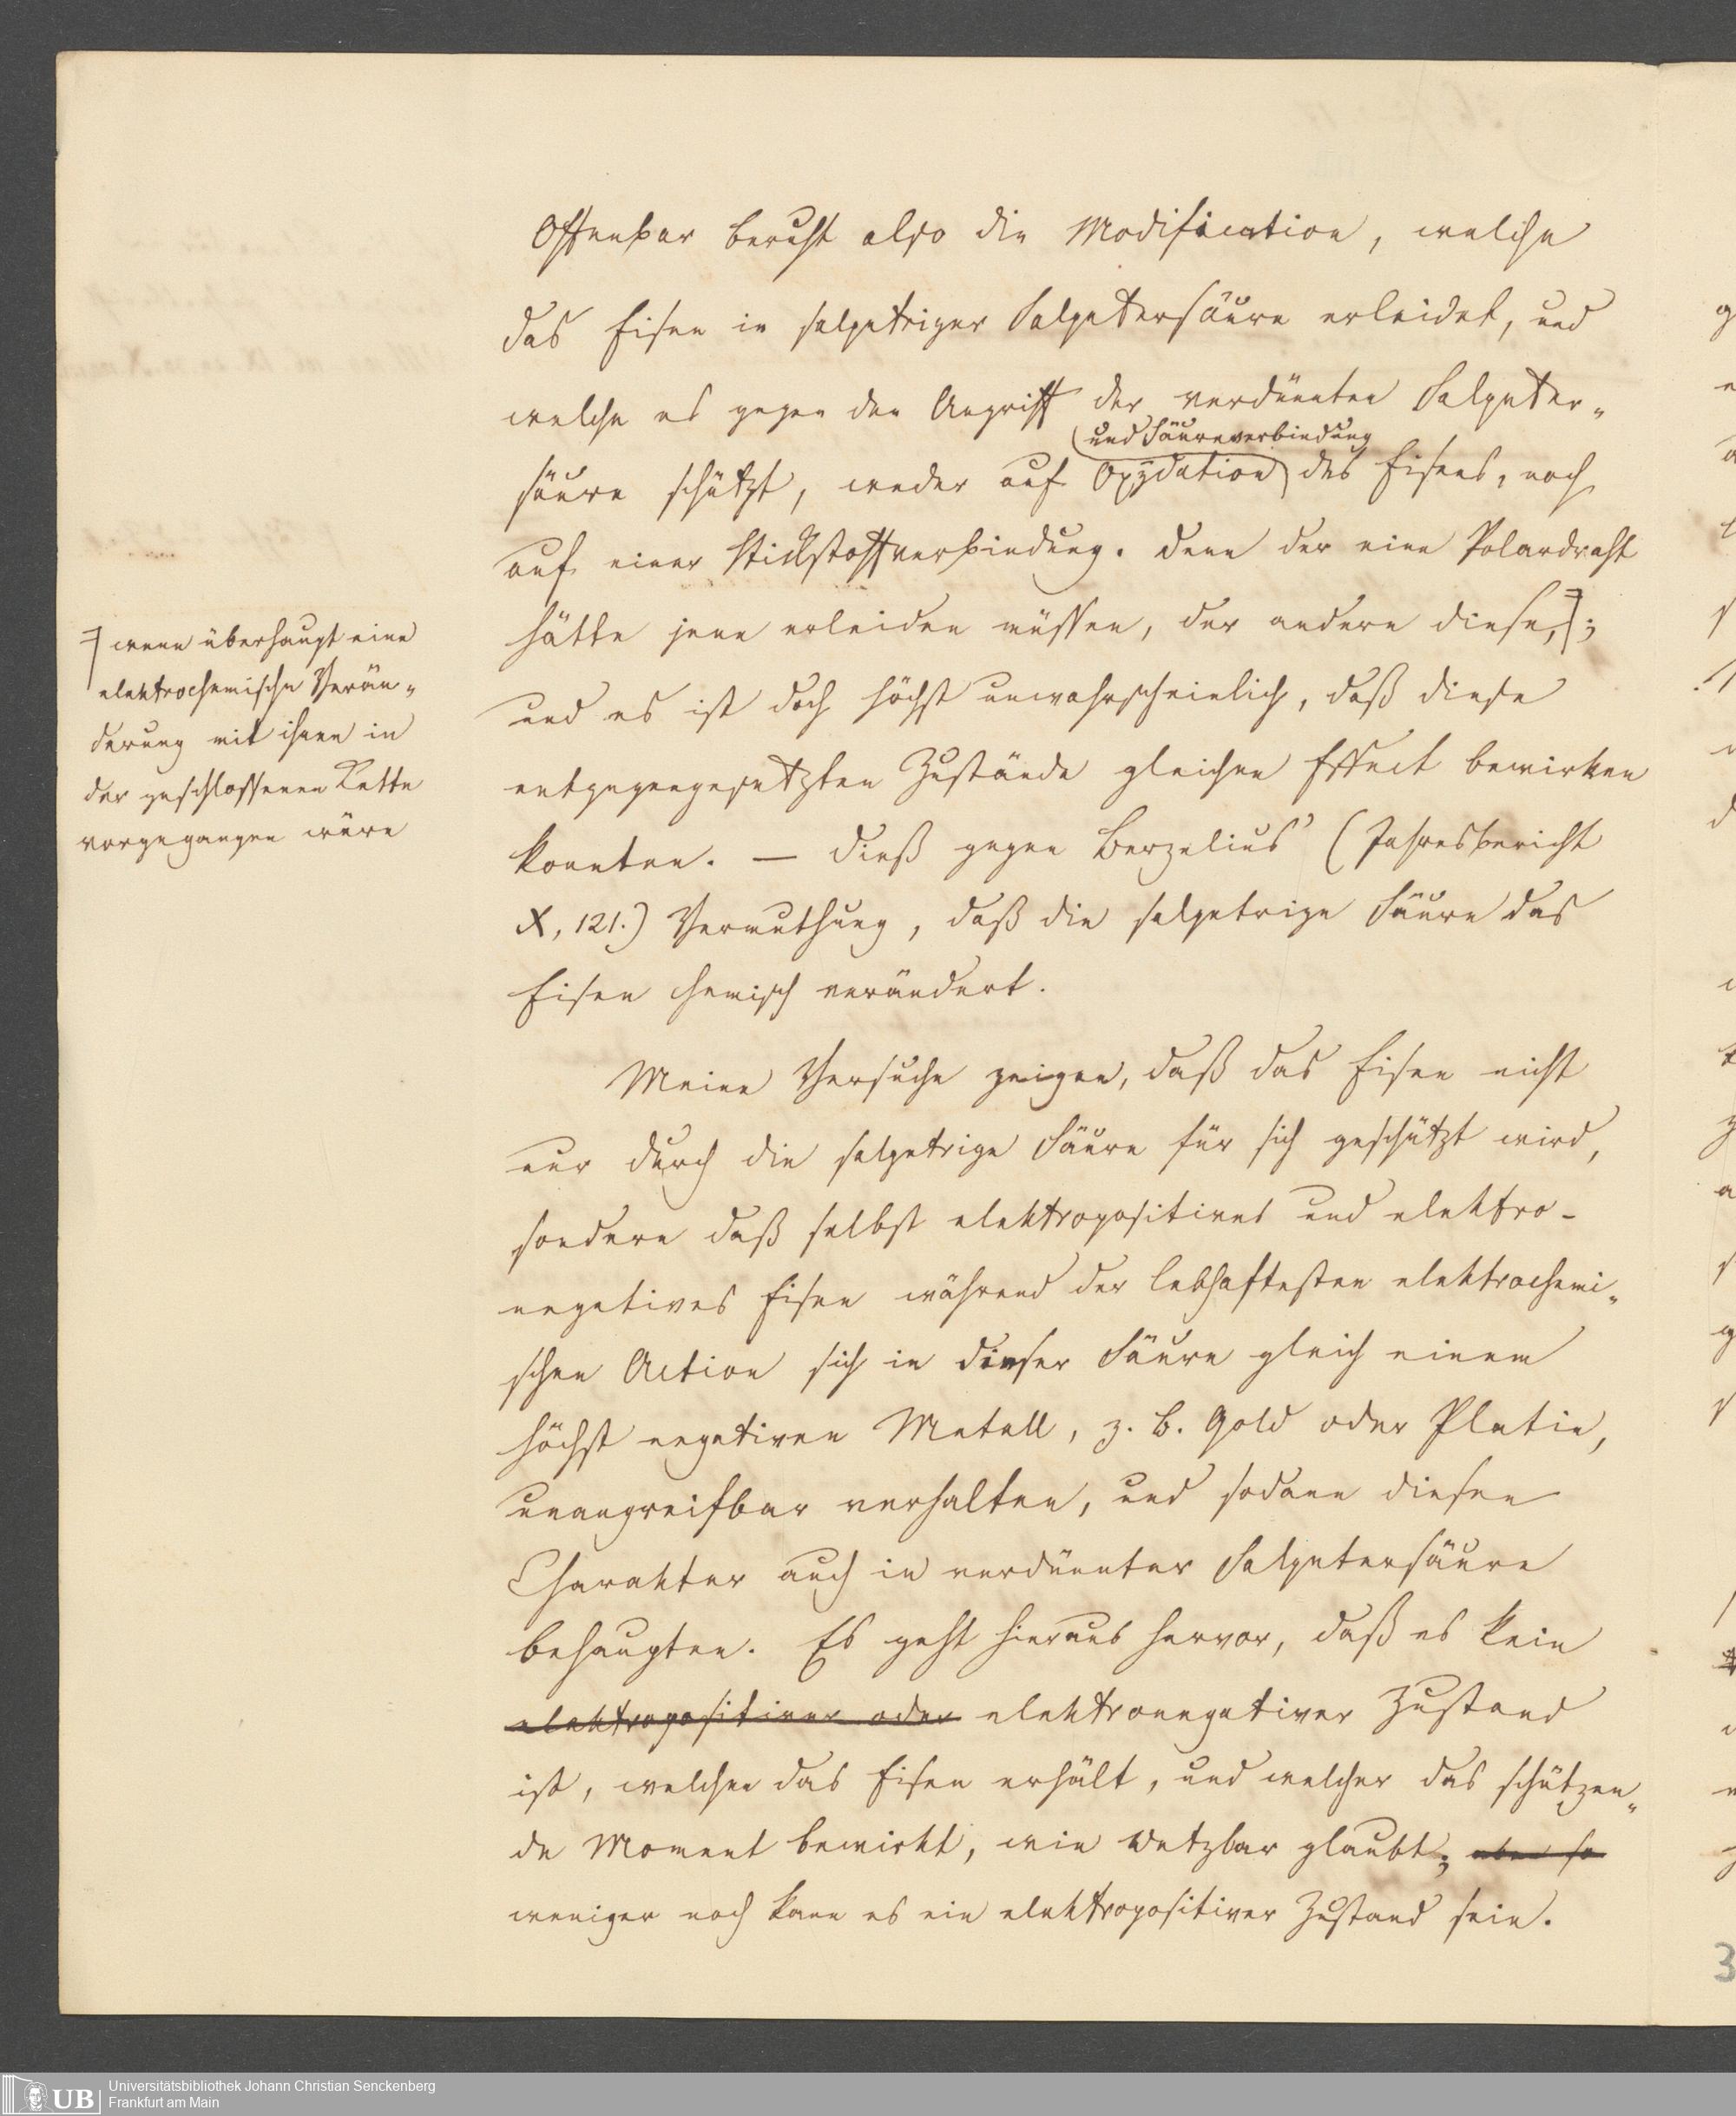 Offenbar beruht also die Modification, welche
das Eisen in salpetriger Salpetersäure erleidet, und
welche es gegen den Angriff der verdünnten Salpeter-
und Säureverbindung
säure schützt, weder auf Oxydation des Eisens, noch
auf einer Stickstoffverbindung. Denn der eine Polardraht
hätte jene erleiden müssen, der andere diese,;
und es ist doch höchst unwahrscheinlich, daß diese
entgegengesetzten Zustände gleichen Effect bewirken
konnten. — Dieß gegen Berzelius' (Jahresbericht
X, 121.) Vermuthung, daß die salpetrige Säure das
Eisen chemisch verändert.
wenn überhaupt eine
elektrochemische Verän-
derung mit ihnen in
der geschlossenen Kette
vorgegangen wäre
Meine Versuche zeigen, daß das Eisen nicht
nur durch die salpetrige Säure für sich geschützt wird,
sondern daß selbst elektropositives und elektro-
negatives Eisen während der lebhaftesten elektrochemi-
schen Action sich in dieser Säure gleich einem
höchst negativen Metall, z. B. Gold oder Platin,
unangreifbar verhalten, und sodann diesen
Charakter auch in verdünnter Salpetersäure
behaupten. Es geht hieraus hervor, daß es kein
elektropositiver oder elektronegativer Zustand
ist, welchen das Eisen erhält, und welcher das schützen-
de Moment bewirkt, wie Wetzlar glaubt; eben so
weniger noch kann es ein elektropositiver Zustand sein.
3
UB Universitätsbibliothek Johann Christian Senckenberg
Frankfurt am Main